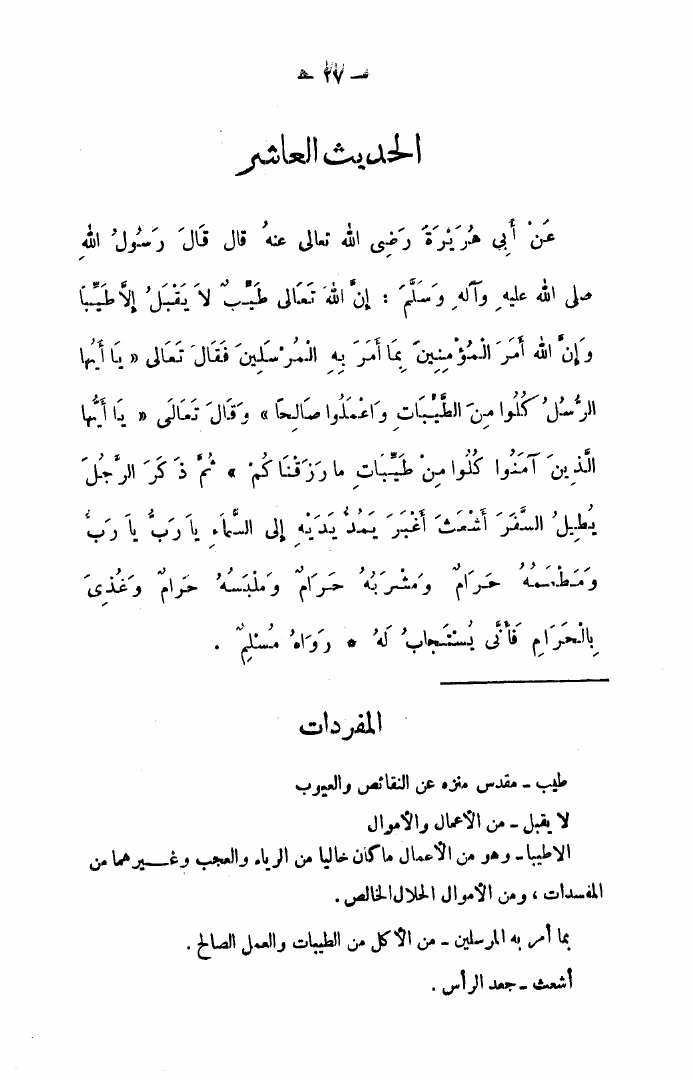 — ٢٧ —
الحديث العاشر
عَنْ أَبِي هُرَيْرَةَ رَضِى الله تعالى عنهُ قال قَالَ رَسُولُ اللهِ
صلى الله عليهِ وَآلهِ وَسَلَّمَ : إنَّ اللهَ تَعَالى طَيِّبٌ لاَ يَقْبَلُ إلاَّ طَيِّبًا
وَإنَّ الله أمَرَ الْمُؤْمِنِينَ بِمَا أمَرَ بِهِ الْمُرْسَلِينَ فَقَالَ تَعالى « يَا أيُّها
الرُّسُلُ كُلُوا مِنَ الطَّيِّبَاتِ وَاعْمَلُوا صَالِحًا » وَقَالَ تَعَالَى « يَا أيُّها
الَّذِينَ آمَنُوا كُلُوا مِنْ طَيِّبَاتِ ما رَزَقْنَاكُمْ » ثُمَّ ذَكَرَ الرَّجُلَ
يُطِيلُ السَّفَرَ أشْعَثَ أغْبَرَ يَمُدُّ يَدَيْهِ إلى السَّمَاءِ يَا رَبُّ يَا رَبُّ
وَمَطْعَمُهُ حَرَامٌ وَمَشْرَبُهُ حَرَامٌ وَمَلْبَسُهُ حَرامٌ وَغُذِىَ
بِالْحَرَامِ فَأَنَّى يُسْتَجابُ لَهُ * رَوَاهُ مُسْلِمٌ .
المفردات
طيب - مقدس منزه عن النقائص والعيوب
لا يقبل - من الأعمال والأموال
الاطيبا - وهو من الأعمال ما كان خاليا من الرياء والعجب وغيرهما من
المفسدات ، ومن الأموال الحلال الخالص .
بما أمر به المرسلين - من الأكل من الطيبات والعمل الصالح .
أشعث - جعد الرأس .